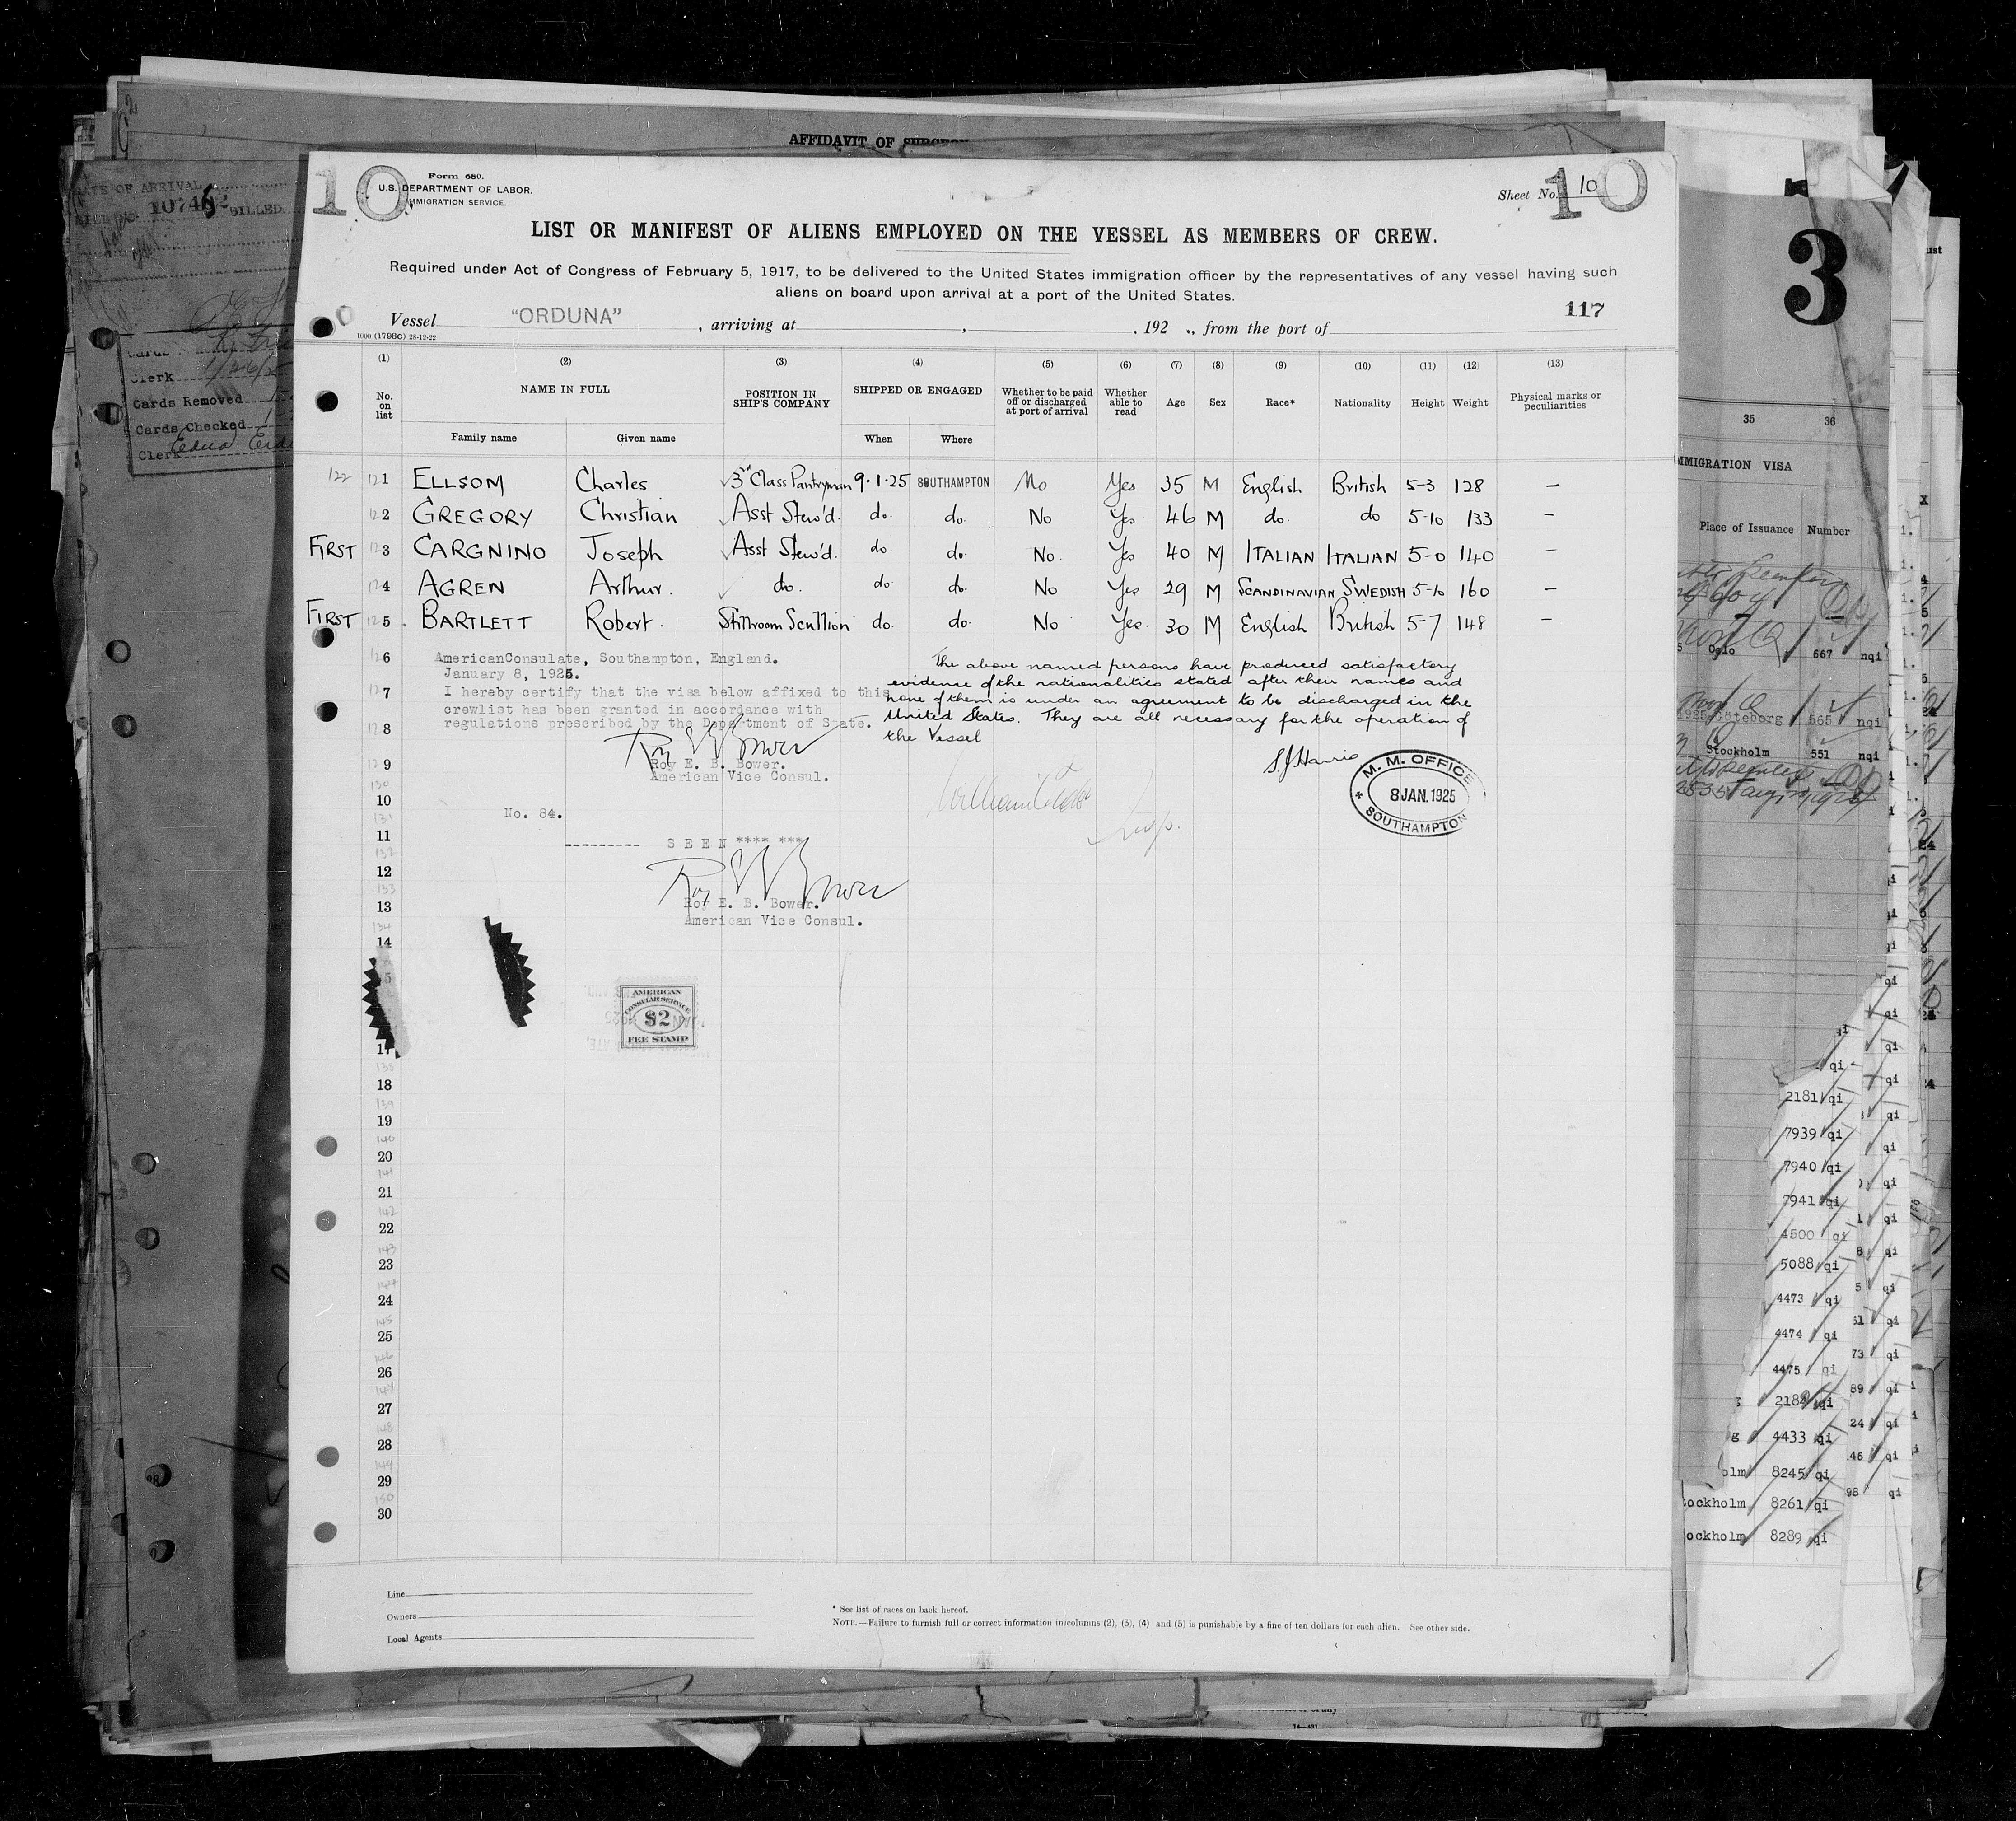 AFFIDAVIT OF SURGEON
10
Form 680.
U.S. DEPARTMENT OF LABOR.
IMMIGRATION SERVICE.
Sheet No. 10
10
LIST OR MANIFEST OF ALIENS EMPLOYED ON THE VESSEL AS MEMBERS OF CREW.
Required under Act of Congress of February 5, 1917, to be delivered to the United States immigration officer by the representatives of any vessel having such
aliens on board upon arrival at a port of the United States.
117
Vessel "ORDUNA", arriving at , , 192 ., from the port of
1000 (1798C) 28-12-22
(1) (2) (3) (4) (5) (6) (7) (8) (9) (10) (11) (12) (13)
No. on list NAME IN FULL POSITION IN SHIP'S COMPANY SHIPPED OR ENGAGED Whether to be paid off or discharged at port of arrival Whether able to read Age Sex Race* Nationality Height Weight Physical marks or peculiarities
Family name Given name When Where
122 121 ELLSOM Charles 3rd Class Pantryman 9·1·25 SOUTHAMPTON No Yes 35 M English British 5-3 128 —
122 GREGORY Christian Asst Stew'd. do. do. No Yes 46 M do. do 5-10 133 —
FIRST 123 CARGNINO Joseph Asst Stew'd. do. do. No. Yes 40 M ITALIAN ITALIAN 5-0 140 —
124 AGREN Arthur. do. do. do. No Yes 29 M SCANDINAVIAN SWEDISH 5-10 160 —
FIRST 125 BARTLETT Robert. Stillroom Scullion do. do. No Yes. 30 M English British 5-7 148 —
126 AmericanConsulate, Southampton, England.
January 8, 1925.
127 I hereby certify that the visa below affixed to this
crewlist has been granted in accordance with
regulations prescribed by the Department of State.
128
The above named persons have produced satisfactory
evidence of the nationalities stated after their names and
none of them is under an agreement to be discharged in the
United States. They are all necessary for the operation of
the Vessel
SJ Harris
M. M. OFFICE
8 JAN. 1925
SOUTHAMPTON
Roy E. B. Bower
129 Roy E. B. Bower.
American Vice Consul.
130
10 No. 84.
131
11 --------- S E E N **** ***
132
12 Roy E. B. Bower
133
13 Roy E. B. Bower.
American Vice Consul.
134
14
5
AMERICAN
CONSULAR SERVICE
$2
FEE STAMP
17
138
18
139
19
140
20
141
21
142
22
143
23
144
24
145
25
146
26
147
27
148
28
149
29
150
30
Line
Owners
Local Agents
* See list of races on back hereof.
NOTE.—Failure to furnish full or correct information in columns (2), (3), (4) and (5) is punishable by a fine of ten dollars for each alien. See other side.
DATE OF ARRIVAL
BILLED
Clerk 1/26/25
Cards Removed
Cards Checked
Clerk Edna
3
35 36
IMMIGRATION VISA
Place of Issuance Number
Oslo 667 nqi
1925 Göteborg 565 nqi
Stockholm 551 nqi
2181 qi
7939 qi
7940 qi
7941 qi
4500 qi
5088 qi
4473 qi
4474 qi
4475 qi
2184 qi
4433 qi
olm 8245 qi
tockholm 8261 qi
ockholm 8289 qi